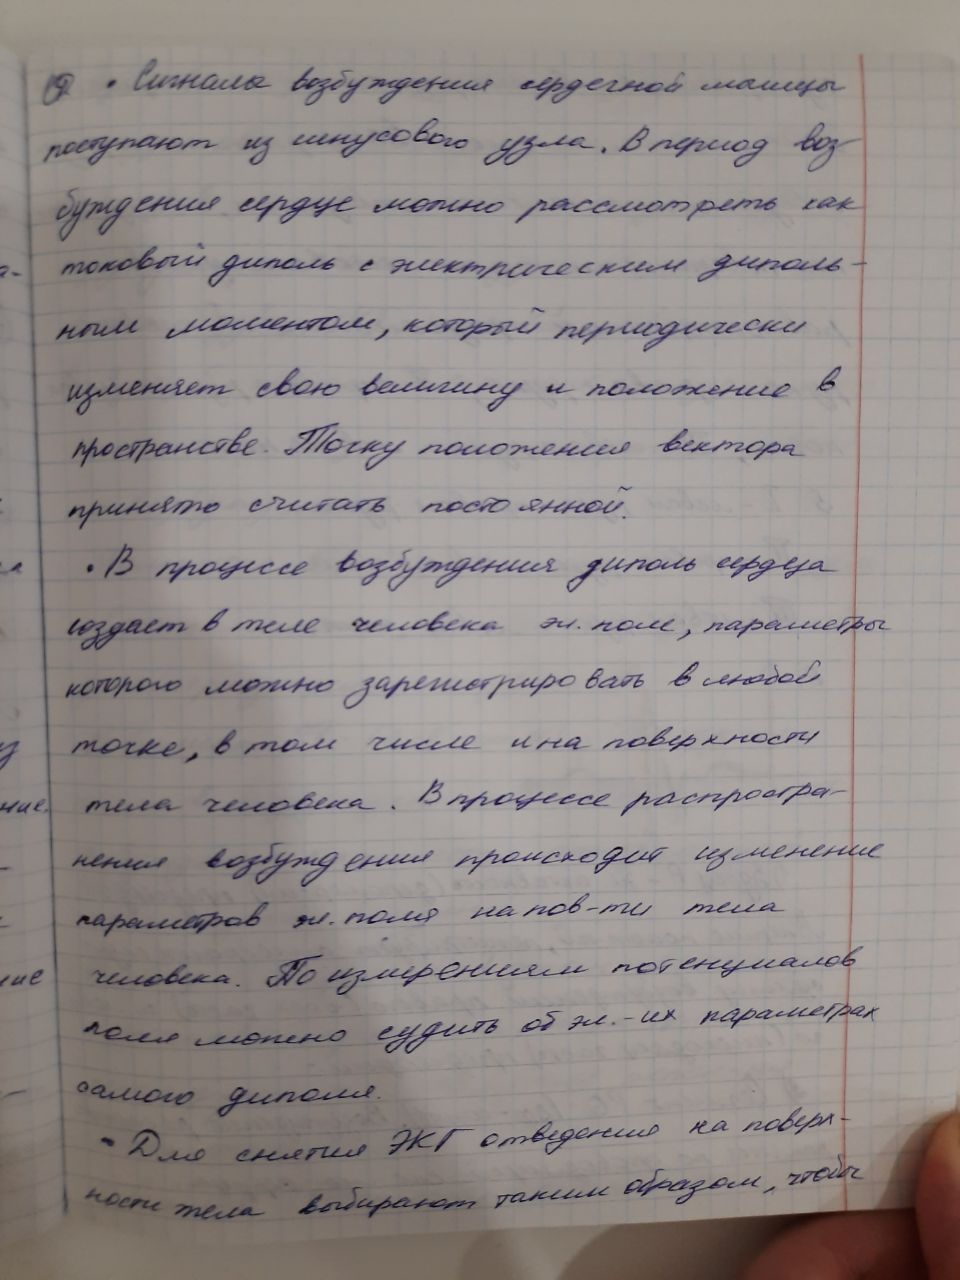 • Сигналы возбуждения сердечной мышцы
поступают из синусового узла. В период воз-
буждения сердце можно рассмотреть как
токовый диполь с электрическим диполь-
ным моментом, который периодически
изменяет свою величину и положение в
пространстве. Точку положения вектора
принято считать постоянной.
• В процессе возбуждения диполь сердца
создает в теле человека эл. поле, параметры
которого можно зарегистрировать в любой
точке, в том числе и на поверхности
тела человека. В процессе распростра-
нения возбуждения происходит изменение
параметров эл. поля на пов-ти тела
человека. По измерениям потенциалов
поля можно судить об эл.-их параметрах
самого диполя.
• Для снятия ЭКГ отведения на поверх-
ности тела выбирают таким образом, чтобы